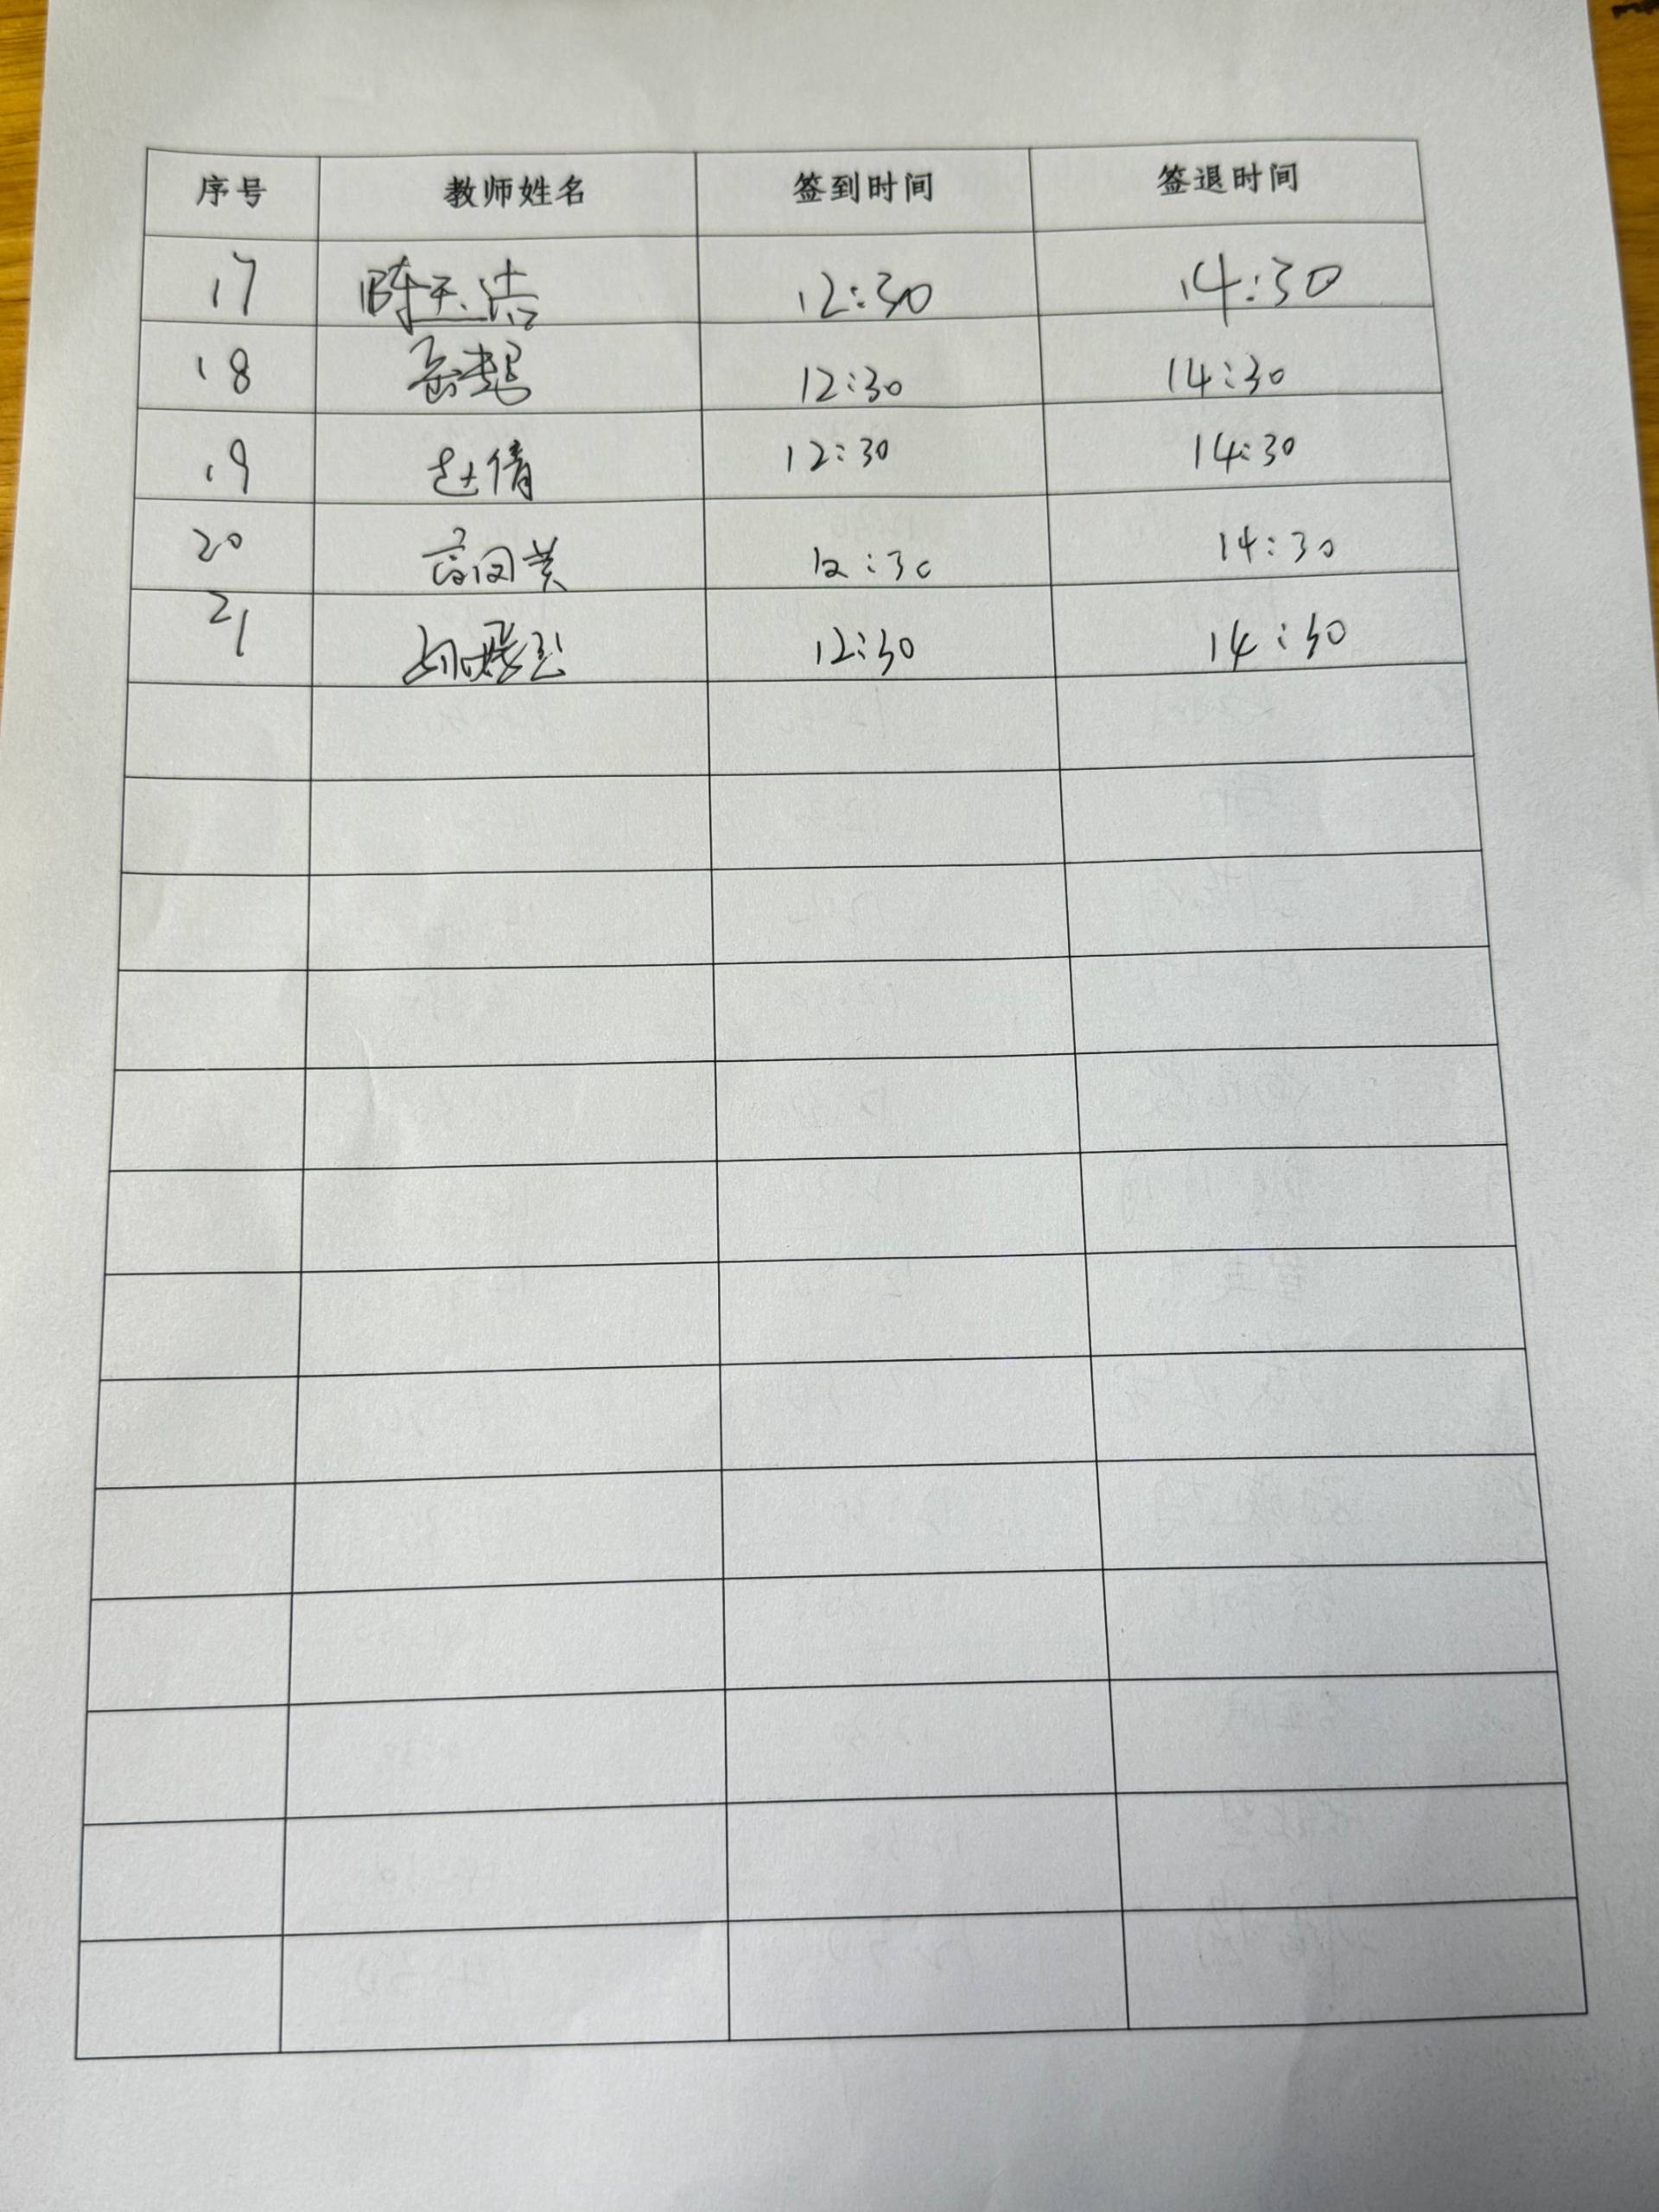 序号 教师姓名 签到时间 签退时间
17 陈天浩 12:30 14:30
18 12:30 14:30
19 赵倩 12:30 14:30
20 12:30 14:30
21 12:30 14:30